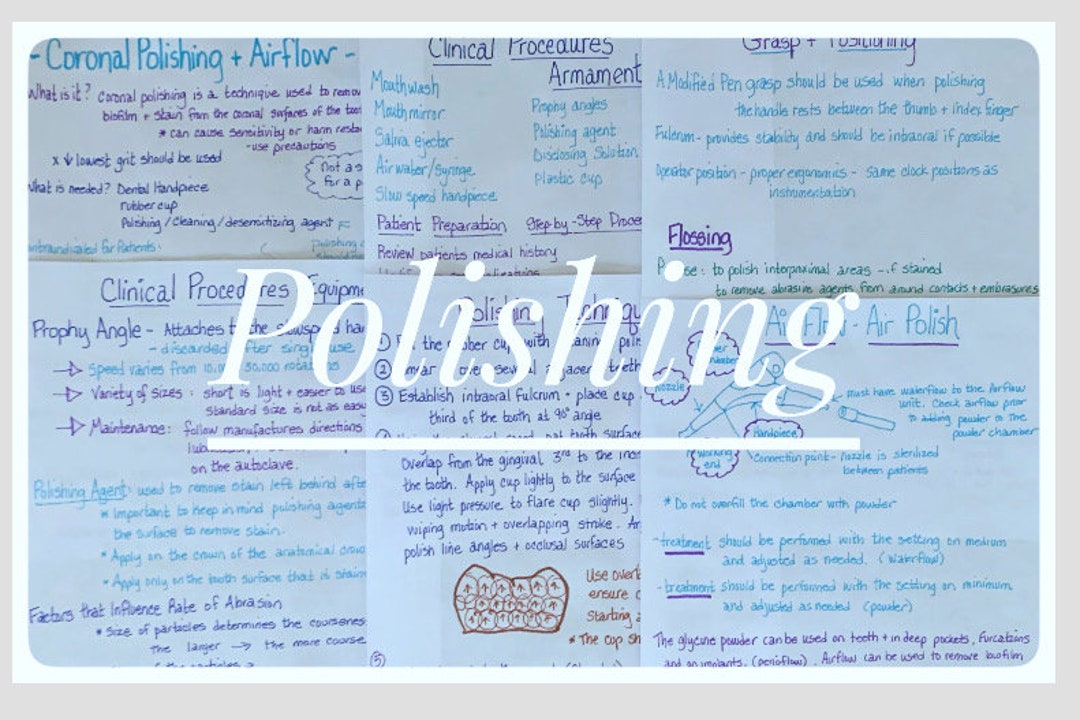 Polishing
- Coronal Polishing + Airflow -
What is it? Coronal polishing is a technique used to remov
biofilm + stain from the coronal surfaces of the toot
* can cause sensitivity or harm resto
-use precautions
x ↓ lowest grit should be used
Not a s
for a p
What is needed? Dental Handpiece
rubber cup
Polishing / Cleaning / desensitizing agent
Clinical Procedures
Armament
Mouthwash
Mouth mirror
Saliva ejector
Air water/syringe
Slow speed handpiece
Prophy angles
Polishing agent
Disclosing Solution
Plastic cup
Patient Preparation Step-by-Step Proce
Review patients medical history
Grasp + Positioning
A Modified Pen grasp should be used when polishing
the handle rests between the thumb + index finger
Fulcrum - provides stability and should be intraoral if possible
Operator position - proper ergonomics - same clock positions as
instrumentation
Flossing
to polish interproximal areas - if stained
to remove abrasive agents from around contacts + embrasures
Clinical Procedures Equipme
Prophy Angle - Attaches to the slowspeed ha
- discarded after single use
Speed varies from
Variety of sizes : short is light + easier to use
Standard size is not as easy
Maintenance: follow manufactures directions
on the autoclave.
Polishing Agent: used to remove stain left behind afte
* Important to keep in mind polishing agents
the surface to remove stain.
* Apply on the crown of the anatomical crow
* Apply only on the tooth surface that is stain
Factors that Influence Rate of Abrasion
* Size of particles determines the courseness
the larger → the more course
Polishing Techniqu
① the rubber cup with
② over several adjacent teeth
③ Establish intraoral fulcrum + place cup
third of the tooth at 90° angle
Overlap from the gingival 3rd to the inc
the tooth. Apply cup lightly to the surface
Use light pressure to flare cup slightly.
wiping motion + overlapping stroke.
polish line angles + occlusal surfaces
Use overl
ensure c
Starting a
* The cup sh
⑤
Air Flow - Air Polish
nozzle
Handpiece
working
end
must have waterflow to the Airflow
unit. Check airflow prior
to adding powder in the
powder chamber
Connection point - nozzle is sterilized
between patients
* Do not overfill the chamber with powder
-treatment should be performed with the setting on medium
and adjusted as needed. (waterflow)
-treatment should be performed with the setting on minimum
and adjusted as needed (powder)
The glycine powder can be used on teeth + in deep pockets, furcations
and on implants. (perioflow). Airflow can be used to remove biofilm